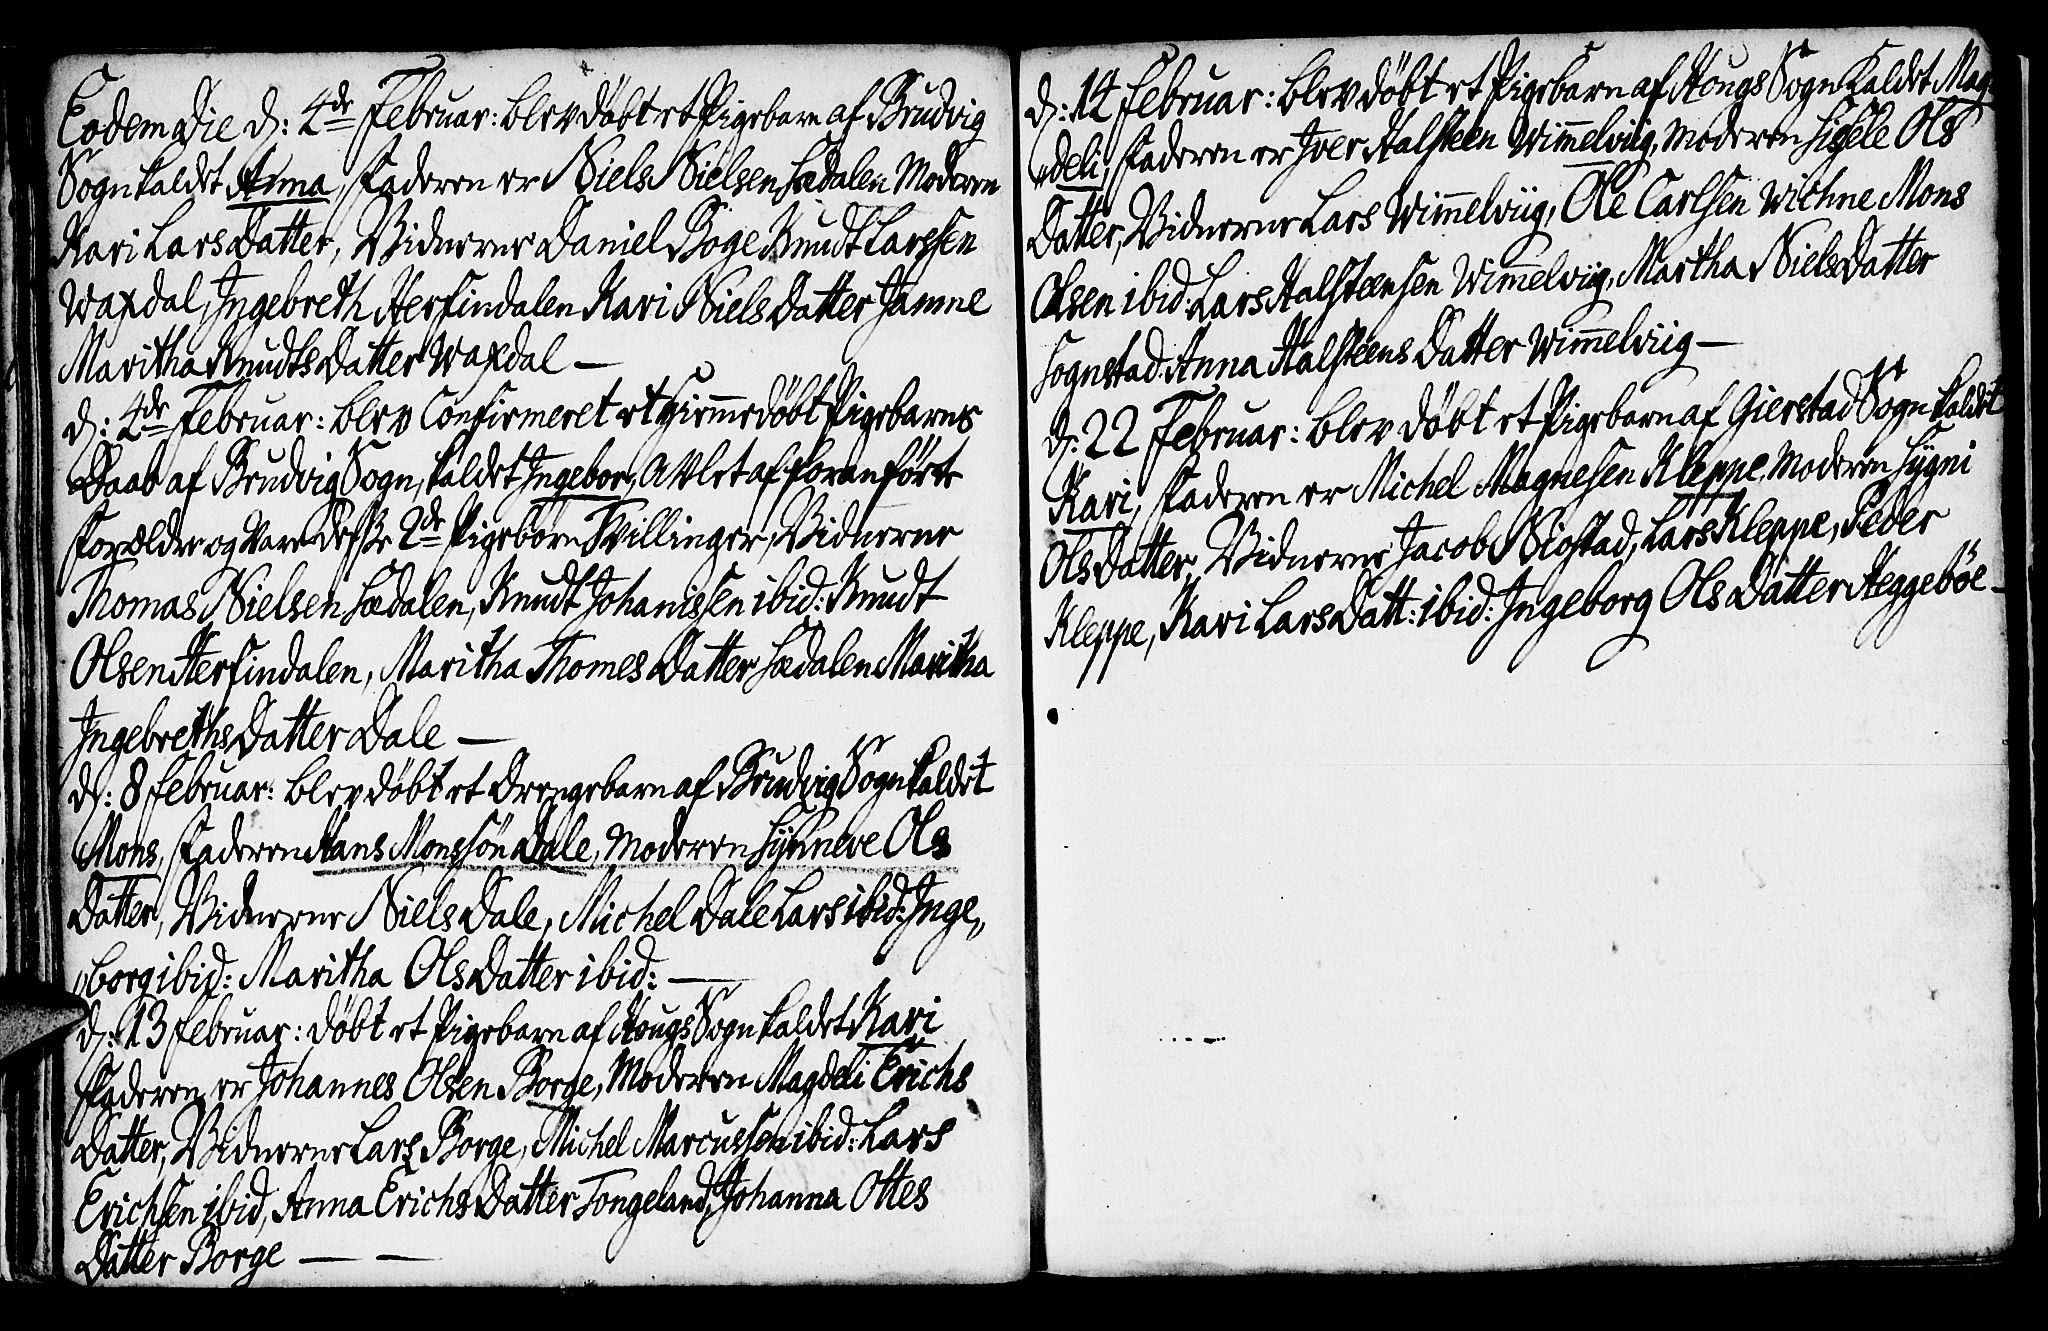 Eodem Die d: 4de Februar: blev döbt et Pigebarn af Brudvig
Sogn kaldet Anna, Faderen er Niels Nielsen Hædalen Moderen
Kari Lars Datter, Vidnerne Daniel Boge Knudt Larssen
Waxdal, Ingebreth Herfindalen Kari Niels Datter Jamne
Maritha Knudts Datter Waxdal —
d: 4de Februar: blev Confirmeret et Hiemedöbt Pigebarns
Daab af Brudvig Sogn, kaldet Ingebor, avlet af foranförte
Forældre og vare disse 2de Pigebörn Tvillinger, Vidnerne
Thomas Nielsen Hædalen, Knudt Johanissen ibid: Knudt
Olsen Herfindalen, Maritha Thomes Datter Hædalen Maritha
Ingebreths Datter Dale —
d: 8 Februar: blev döbt et Drengebarn af Brudvig Sogn kaldet
Mons, Faderen Hans Monssön Dale, Moderen Synneve Ols
Datter, Vidnerne Niels Dale, Michel Dale Lars ibid: Inge„
„borg ibid: Maritha Ols Datter ibid: —
d: 13 Februar: döbt et Pigebarn af Hougs Sogn kaldet Kari
Faderen er Johannes Olsen Borge, Moderen Magdeli Erichs
Datter, Vidnerne Lars Borge, Michel Marcussen ibid: Lars
Erichsen ibid, Anna Erichs Datter Tongeland, Johanna Ottes
Datter Borge — —
d: 14 Februar: blev döbt et Pigebarn af Hougs Sogn kaldet Mag„
„deli, Faderen er Iver Halsteen Wim̄elviig, Moderen Sigele Ols
Datter, Vidnerne Lars Wim̄elviig, Ole Carlsen Wichne Mons
Olsen ibid: Lars Halsteensen Wim̄elviig, Martha Niels Datter
Sognstad Anna Halsteens Datter Wim̄elviig —
d: 22 Februar: blev döbt et Pigebarn af Gierstad Sogn kaldet
Kari, Faderen er Michel Magnesen Kleppe, Moderen Sygni
Ols Datter, Vidnerne Jacob Niostad, Lars Kleppe, Peder
Kleppe, Kari Lars Datt: ibid: Ingeborg Ols Datter Heggeböe —